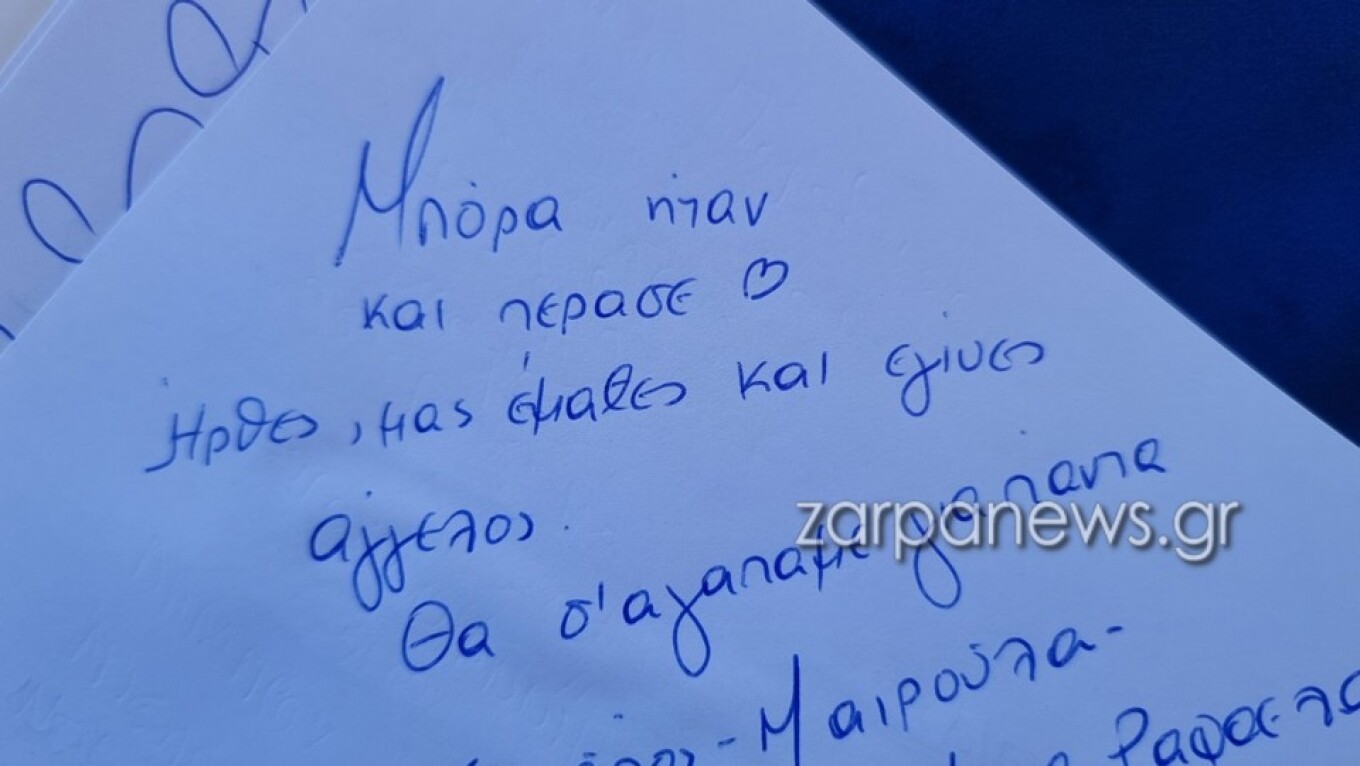 Μπόρα ήταν
και περασε ♡
Ήρθες, μας έμαθες και εγινες
άγγελος.
Θα σ'αγαπαμε για παντα
zarpanews.gr
- Μαιρούλα -
Ραφαελα